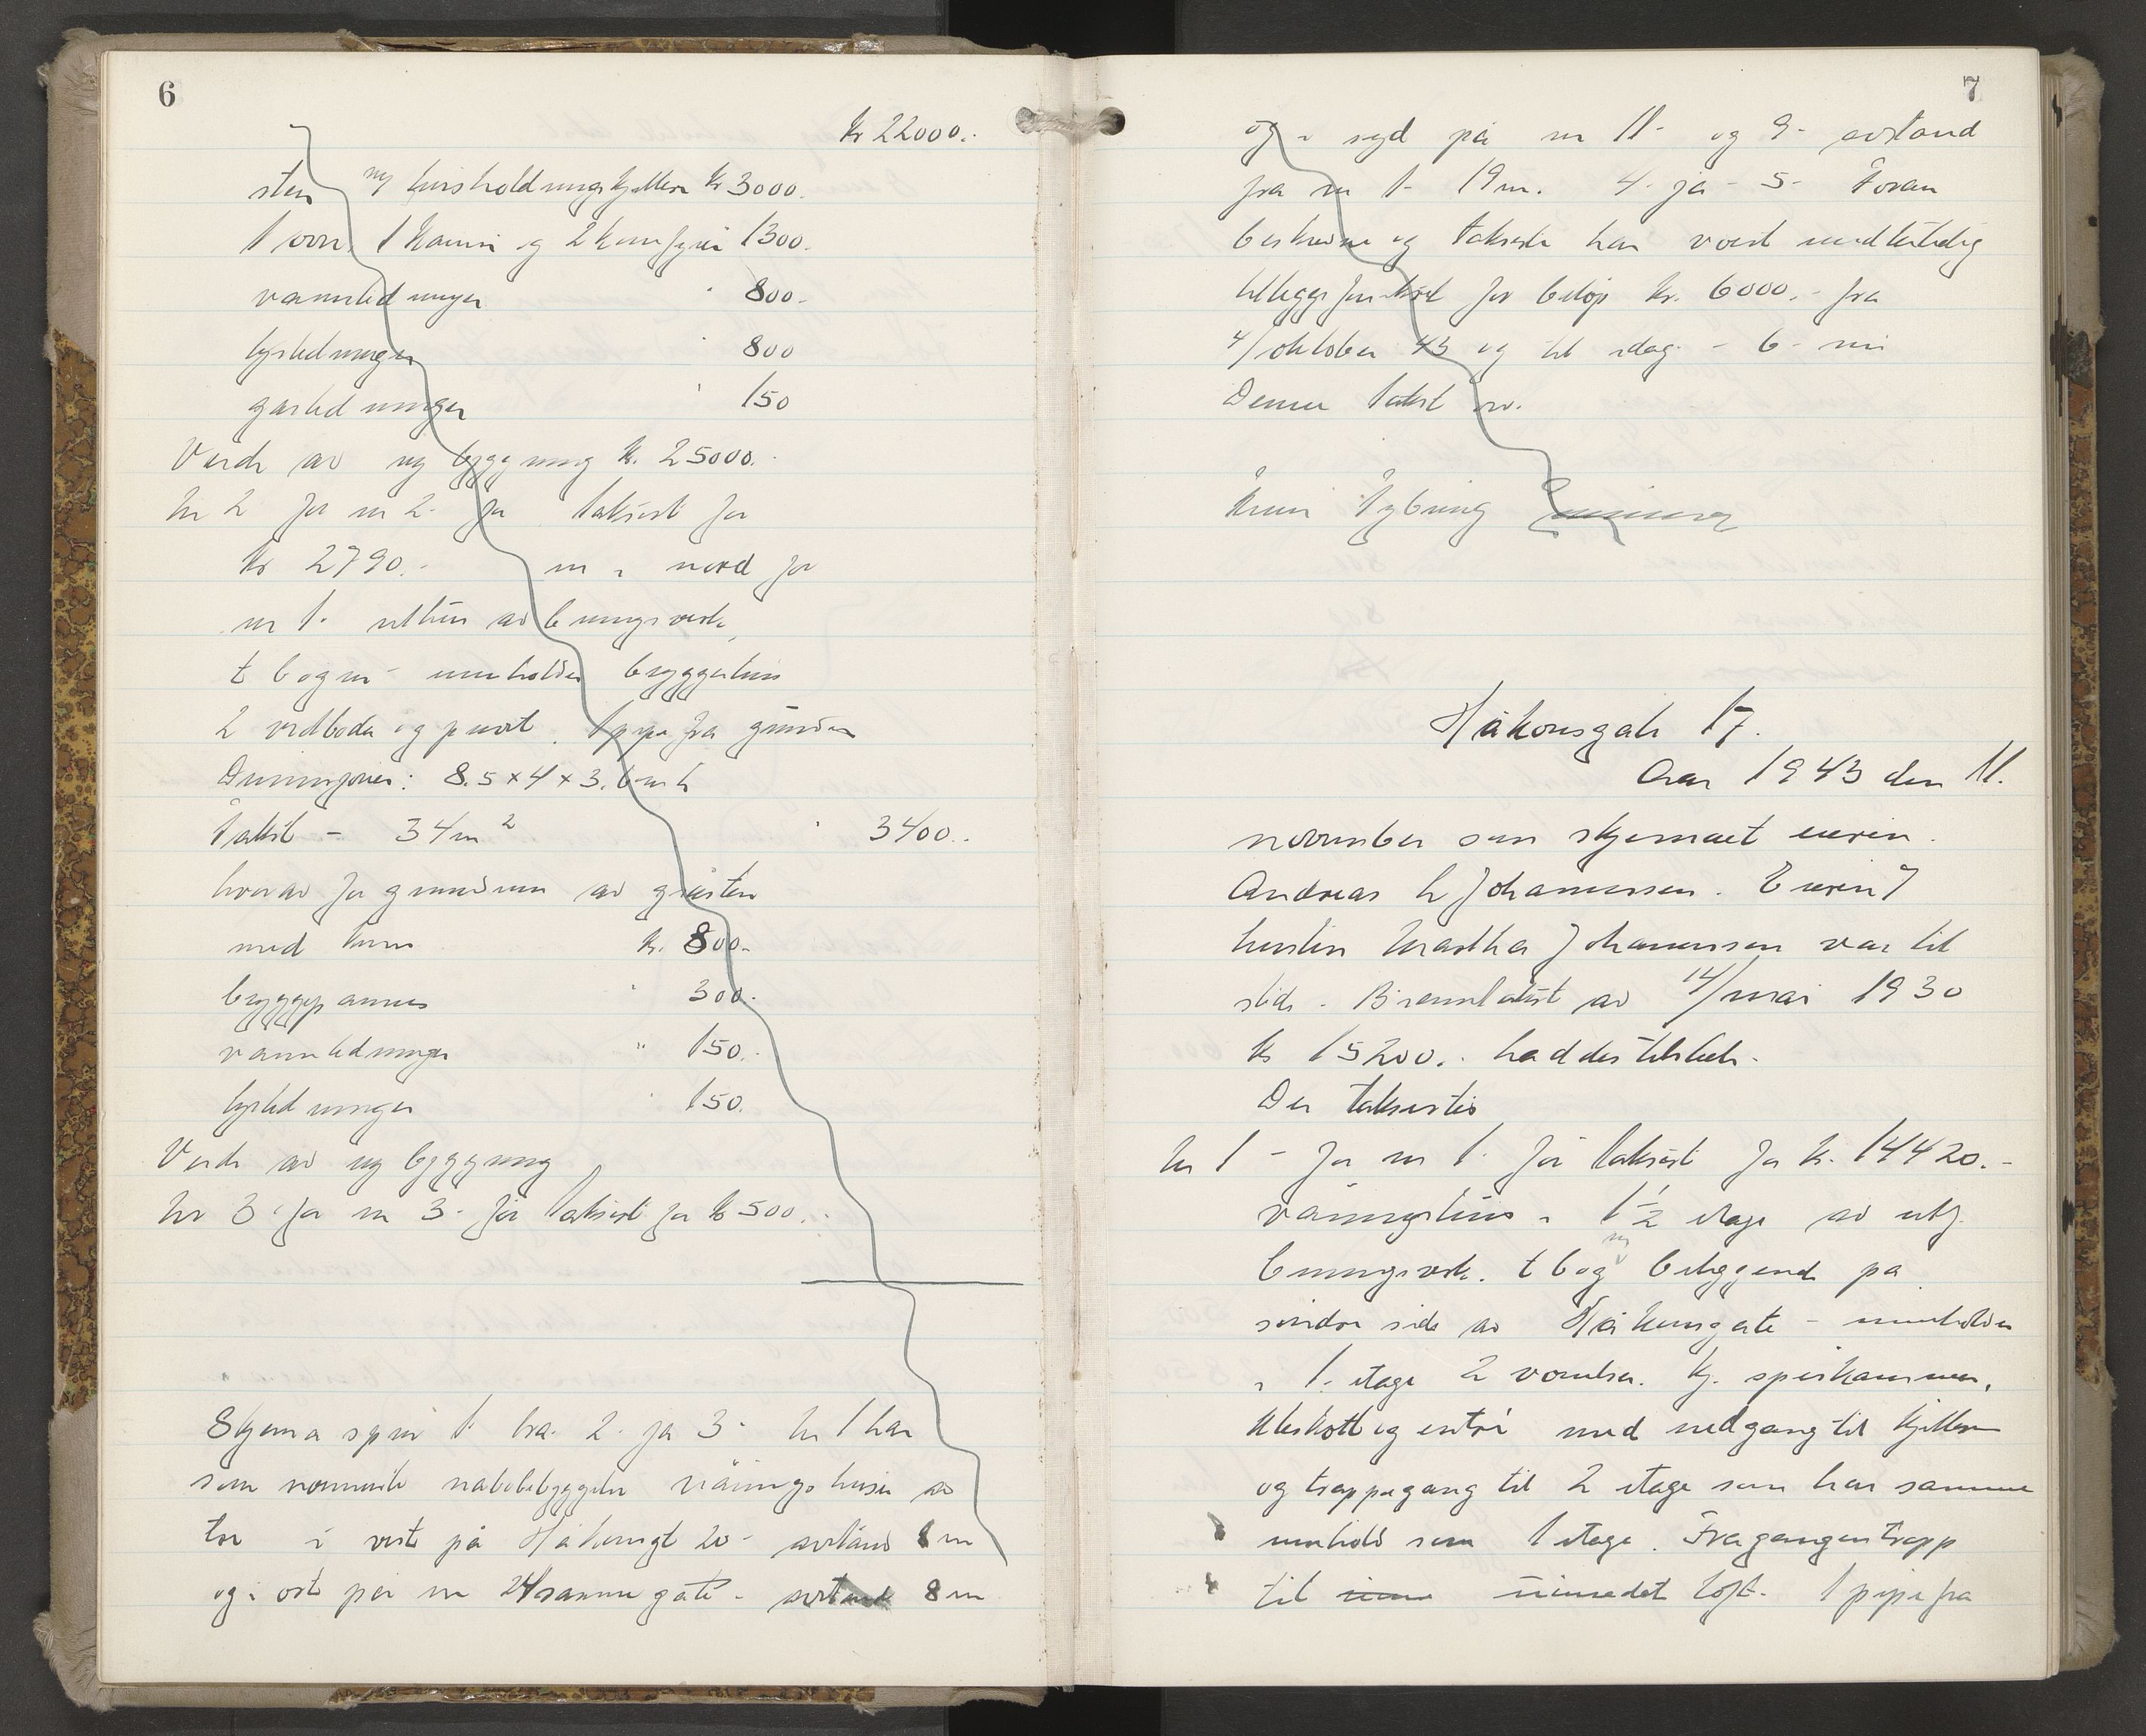 6
kr 22000.-
sten ny husholdningskjeller kr 3000.
1 ovn 1 kamin og 2 komfyrer 1300.
vannledninger " 800.-
lysledninger " 800
gasledninger " 150
Verdi av ny bygning kr. 25000.-
Nr 2 for nr 2 før taksert for
kr 2790.- nr i nord for
nr 1. uthus av bingsverk
t bog m inneholder bryggerhus
2 vedboder og privet. 1 pipe fra grunden
Dimmisjoner: 8.5 x 4 x 3.6 m h
Takst - 34 m² " 3400.-
hvorav for grundmur av gråsten
med kum kr. 800.-
bryggepannes " 300.-
vannledninger " 150.-
lysledninger " 150.
Verdi av ny bygning
Nr 3 for nr 3 før taksert for kr 500.-
Skjema spm 1 bra. 2 ja 3- Nr 1 har
som nærmeste nabobebyggelse våningshuser av
tre i vest på Håkonsgt 20 - avstand 8 m
og i øst på nr 24 samme gate - avstand 8 m
7
og i syd på nr 11- og 9- avstand
fra nr 1- 19 m. 4- ja - 5- Foran
beskrevne og takserte har vært midlertidig
tilleggsforsikret for beløp kr. 6000.- fra
4/oktober 43 og til idag - 6- nei
Denne takst
Håkonsgate 17.
Aar 1943 den 11.
november som skjemaet eieren.
Andreas L Johannessen. Eieren
hustru Martha Johannessen var til
stede. Branntakst av 14/mai 1930
kr 15200.- haddes tilstede.
Der taksertes
Nr 1 - for nr 1 før taksert for kr. 14420.-
våningshus i 1½ etage av utf.
bingsverk. t bog m beliggende på
søndre side av Håkonsgate - inneholder
i 1. etage 2 værelser. kj. spiskammer,
kleskott og entré med nedgang til kjelleren
og trappegang til 2 etage som har samme
innhold som 1 etage. Fra gangen trapp
til uinnredet loft. 1 pipe fra